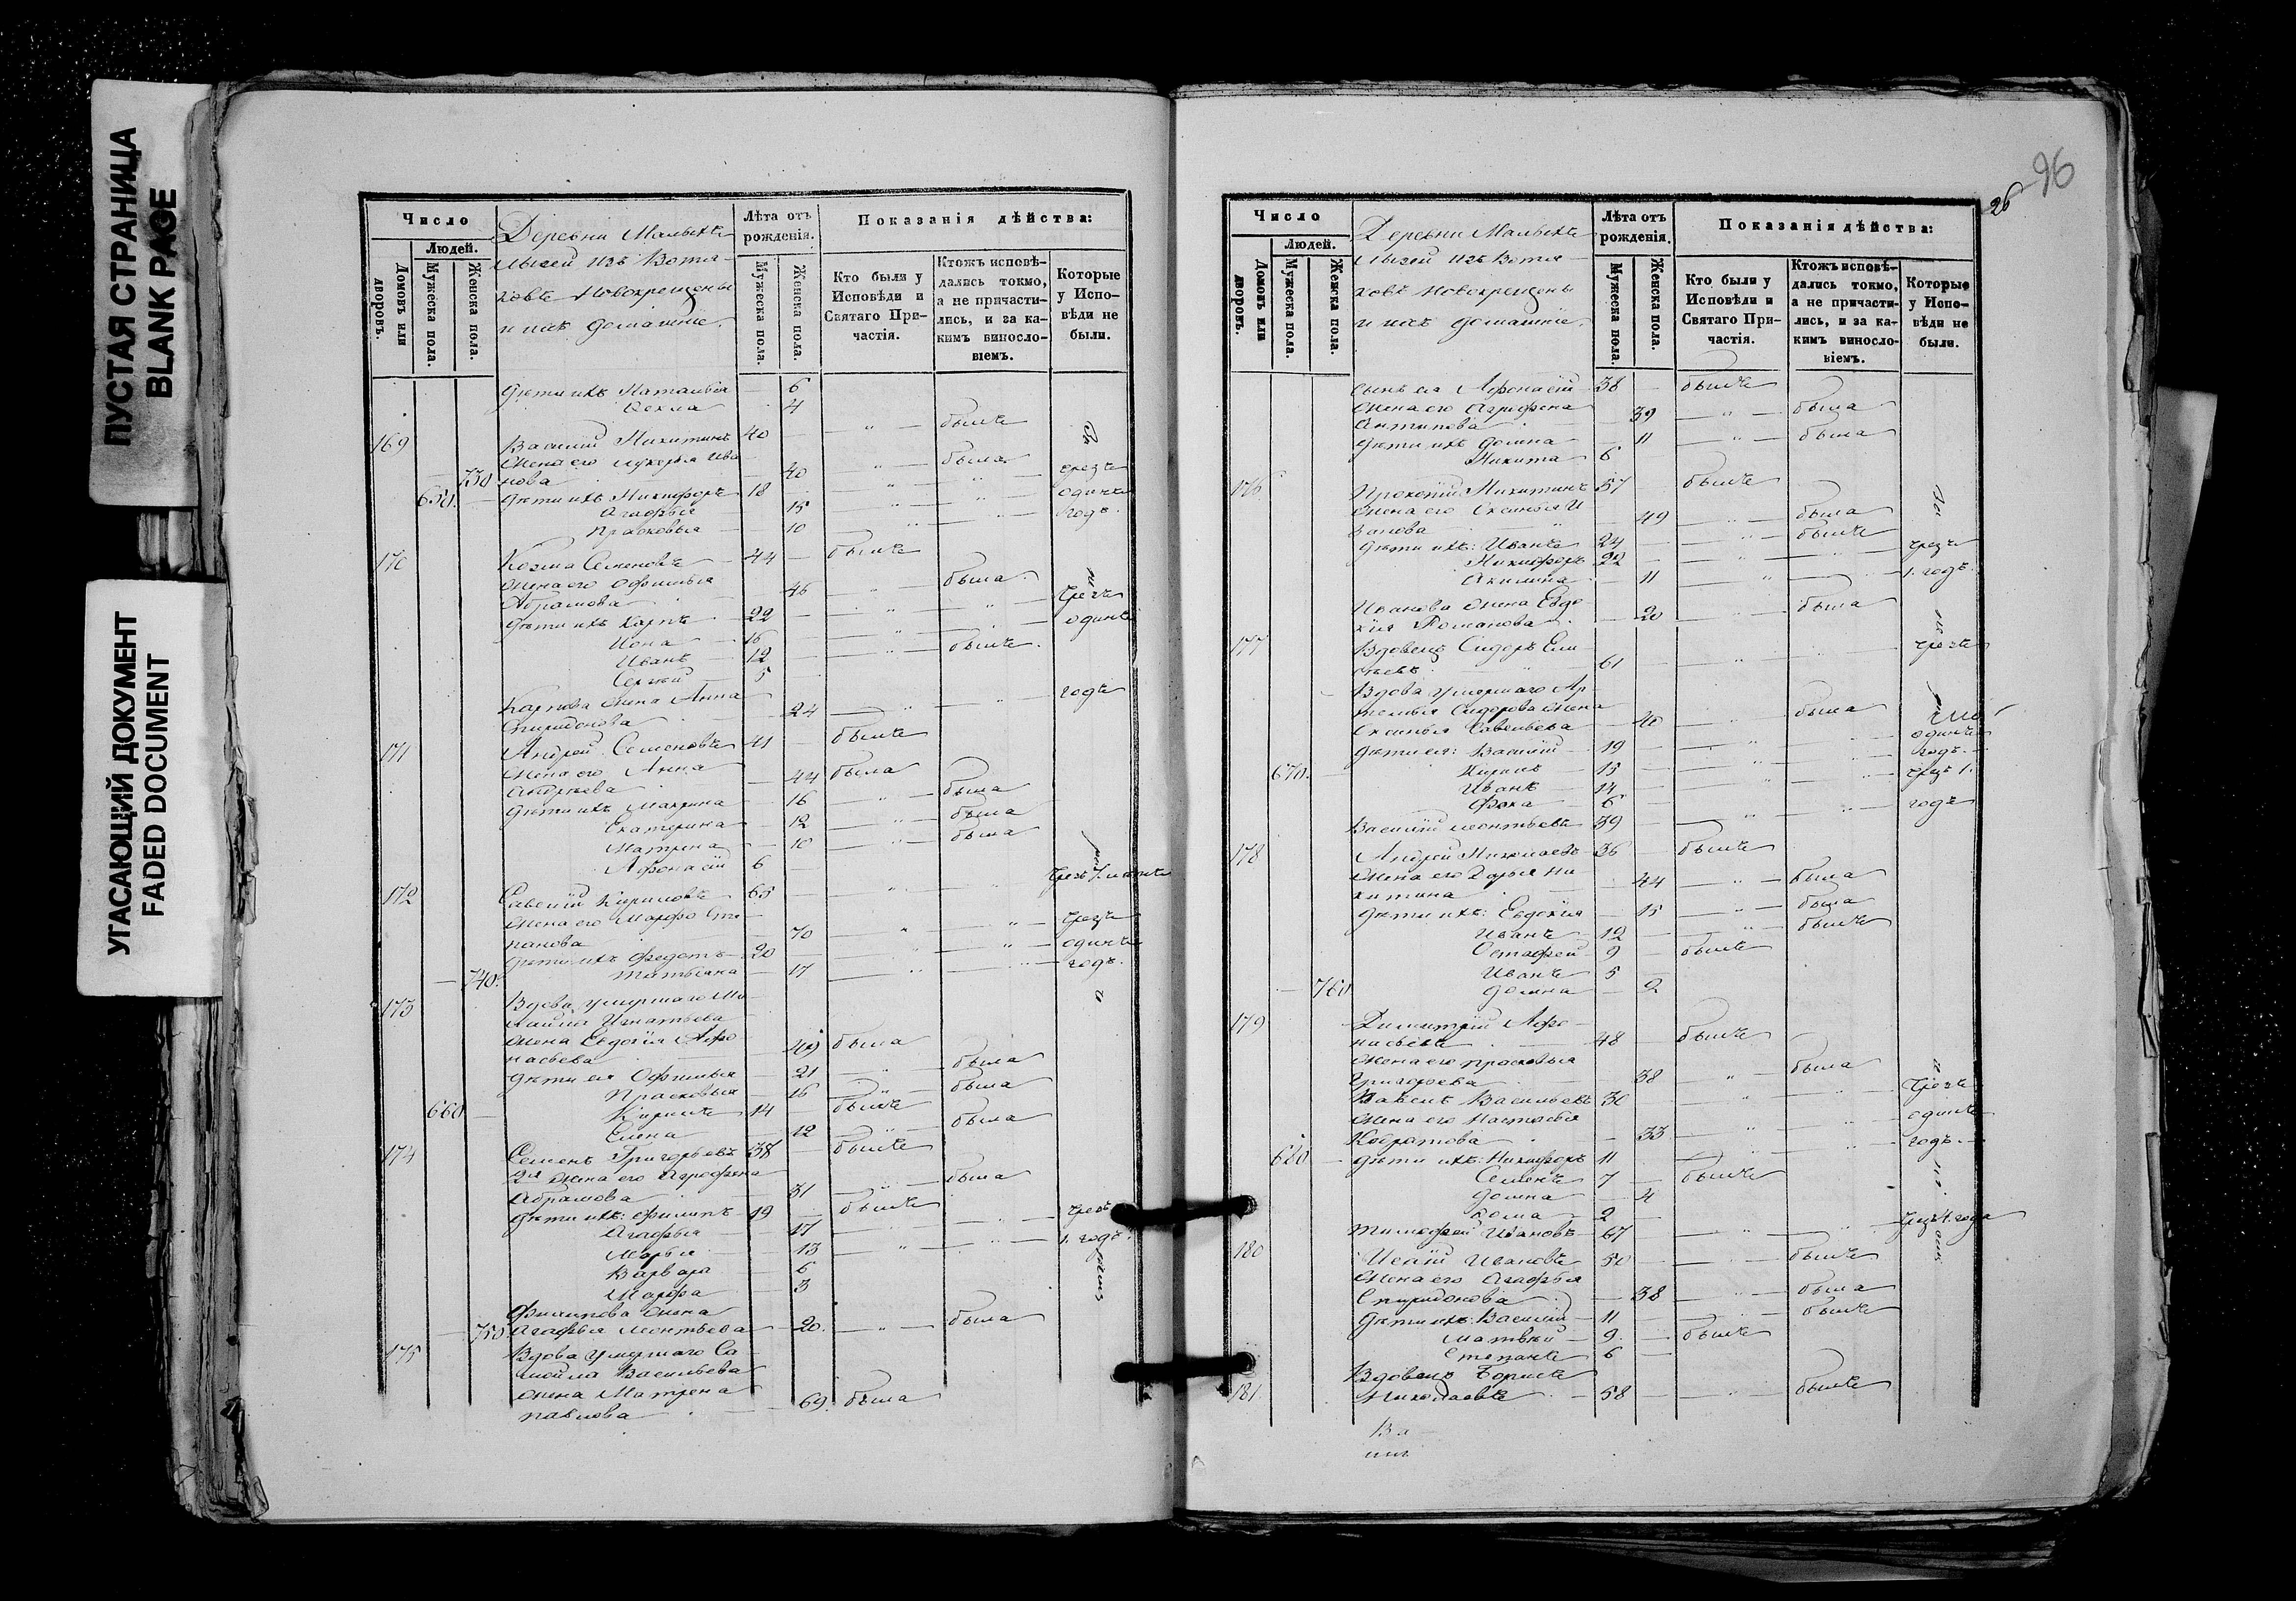 ПУСТАЯ СТРАНИЦА
BLANK PAGE
УГАСАЮЩИЙ ДОКУМЕНТ
FADED DOCUMENT
Число
Людей.
Домовъ или дворовъ.
Мужеска пола.
Женска пола.
Деревни Малыхъ
Лызей изъ Вотя-
ковъ Новокрещены
и ихъ домашніе.
Лѣта отъ рожденія.
Мужеска пола.
Женска пола.
Показанія дѣйства:
Кто были у Исповѣди и Святаго При-частія.
Ктожъ исповѣ-дались токмо, а не причасти-лись, и за ка-кимъ винносло-віемъ.
Которые у Испо-вѣди не были.
дѣти ихъ Наталья 6
4
169 Василій Никитинъ 40 " былъ
жена его Лукерья Ива
730 нова 40 " была чрезъ
650. дѣти ихъ Никифоръ 18 " " одинъ
Агафья 15 " " годъ.
Прасковья 10 "
170 Козма Семеновъ 44 былъ
жена его Офимья
Абрамова 46 " была. чрезъ
дѣти ихъ Карпъ 22 " " одинъ
Иона 16 "
Иванъ 12 " былъ.
Сергѣй 5
Карпова жена Анна годъ
Спиридонова 24 " "
171 Андрей Семеновъ 41 былъ
жена его Анна
Андрѣева 44 была
дѣти ихъ Маврина 16 " была
Екатерина 12 " была
Матрена 10 " была
Афонасій 6
172 Савелій Кириловъ 65 " "
жена его Марфа Сте
панова 70 " " чрезъ
дѣти ихъ Федотъ 20 " " одинъ
740. Татьяна 17 " " годъ.
173 Вдова умершаго Ми
хайла Игнатьева
жена Евдокія Афо
насьева 49 была
дѣти ея Офимья 21 " была
Прасковья 16 " была
660 Кирилъ 14 былъ
Елена 12 " была
174 Семенъ Григорьевъ 38 былъ
2я жена его Агрофена
Абрамова 31 " была
дѣти ихъ: Филипъ 19 былъ
Агафья 17 " " чрезъ
Марья 13 " " 1. годъ.
Варвара 6
Марфа 3
Филипова жена
750 Агафья Леонтьева 20. " была
175 Вдова умершаго Са
мойла Васильева
жена Матрена
Павлова 69. была
26 96
Число
Людей.
Домовъ или дворовъ.
Мужеска пола.
Женска пола.
Деревни Малыхъ
Лызей изъ Вотя-
ковъ Новокрещены
и ихъ домашніе.
Лѣта отъ рожденія.
Мужеска пола.
Женска пола.
Показанія дѣйства:
Кто были у Исповѣди и Святаго При-частія.
Ктожъ исповѣ-дались токмо, а не причасти-лись, и за ка-кимъ винносло-віемъ.
Которые у Испо-вѣди не были.
сынъ ея Афонасій 38 былъ
жена его Агрофена
Антипова 39 " была
дѣти ихъ Домна 11 " была
Никита 6
176 Прокопій Никитинъ 57 былъ
жена его Ксенья И
ванова 49 " была
дѣти ихъ: Иванъ 24 " былъ
Никифоръ 22 " " чрезъ
Акилина 11 " 1. годъ.
Иванова жена Евдо
кія Романова 20 " была
177 Вдовецъ Сидоръ Ели
сѣевъ 61 " " чрезъ
Вдова умершаго Ар
темья Сидорова жена
Ксенья Савельева 40 " была
дѣти ея: Василій 19 " " одинъ
670. Кирилъ 15 " " годъ.
Иванъ 14 " " чрезъ 1.
Фока 6
Василій Леонтьевъ 39 " " годъ
178 Андрей Николаевъ 36 былъ
жена его Дарья Ни
китина 44 " была
дѣти ихъ: Евдокія 15 " была
Иванъ 12 " былъ
Остафей 9 былъ
Иванъ 5
760 Домна 2
179 Димитрій Афо
насьевъ 48 былъ
жена его Прасковья
Григорьева 38 " была
Павелъ Васильевъ 30 " " чрезъ
жена его Настасья
Кондратова 33 " " одинъ
620 дѣти ихъ: Никифоръ 11 " годъ.
Семенъ 7 былъ
Домна 4
2
Тимофей Ивановъ 67 " "
180 Исай Ивановъ 50 былъ
жена его Агафья
Спиридонова 38 " была
дѣти ихъ: Василій 11 " былъ
Матвѣй 9 былъ
Степанъ 6
Вдовецъ Борисъ
181 Николаевъ 58 " былъ
Ва